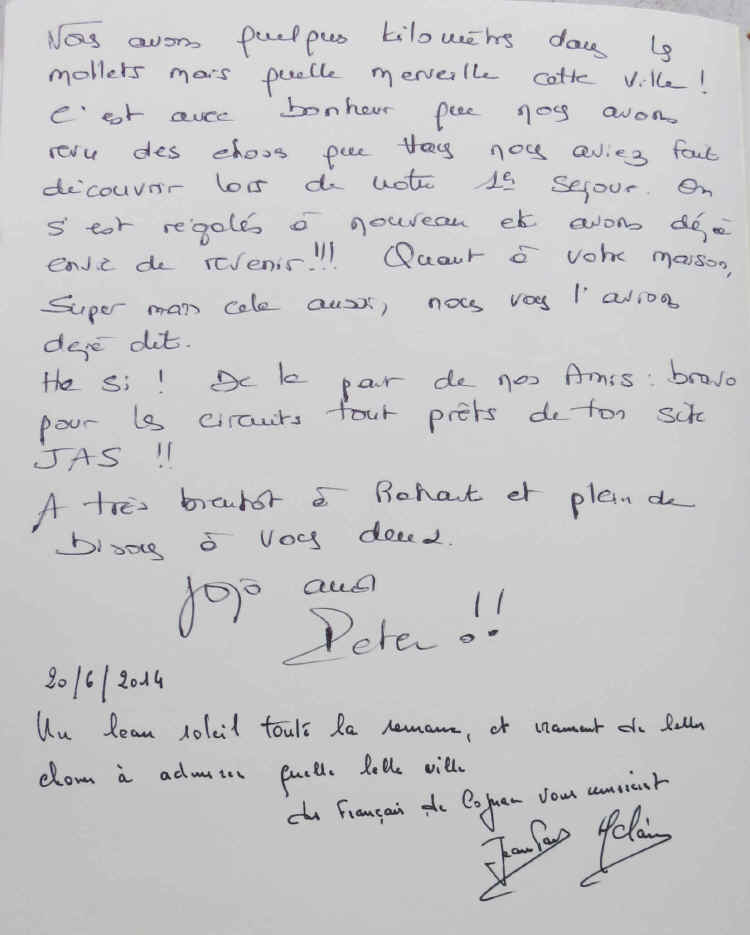 Nous avons quelques kilomètres dans les
mollets mais quelle merveille cette ville !
C'est avec bonheur que nous avons
revu des choses que vous nous aviez fait
découvrir lors de notre 1er séjour. On
s'est régalés à nouveau et avons déjà
envie de revenir !!! Quant à votre maison,
super mais cela aussi, nous vous l'avions
déjà dit.
Ha si ! De la part de nos Amis : bravo
pour les circuits tout prêts de ton site
JAS !!
A très bientôt à Rohart et plein de
bisous à vous deux.
Jojo and
Peter !!
20/6/2014
Un beau soleil toute la semaine, et vraiment de belles
choses à admirer quelle belle ville
des Français de Cognac vous remercient
Jean Paul